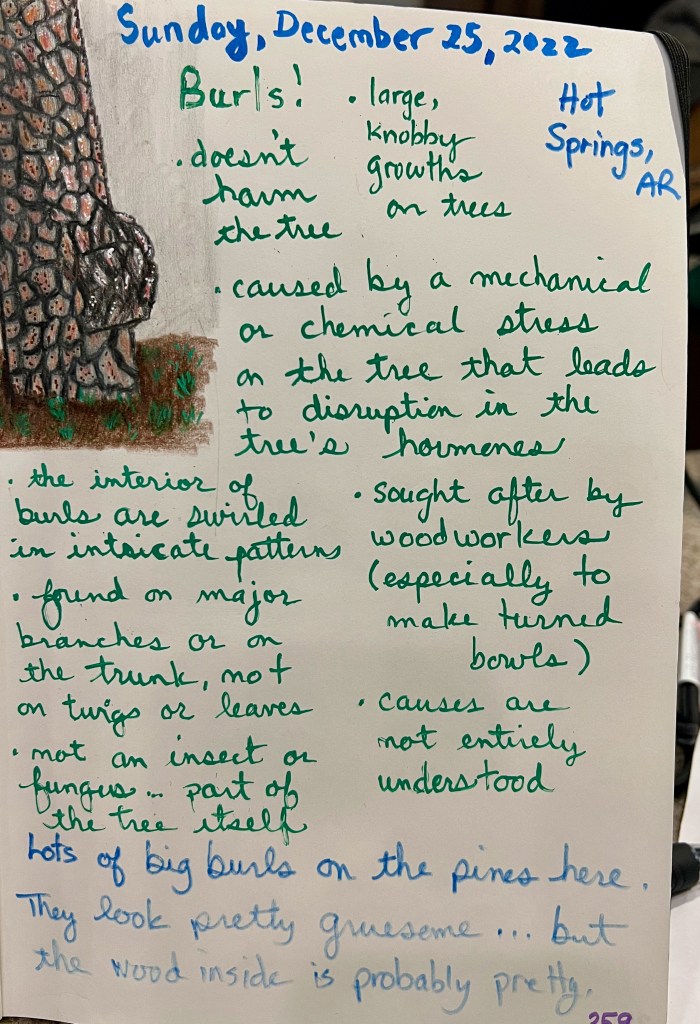 Sunday, December 25, 2022
Hot
Springs,
AR
Burls!
• large,
knobby
growths
on trees
• doesn't
harm
the tree
• caused by a mechanical
or chemical stress
on the tree that leads
to disruption in the
tree's hormones
• the interior of
burls are swirled
in intricate patterns
• found on major
branches or on
the trunk, not
on twigs or leaves
• not an insect or
fungus... part of
the tree itself
• sought after by
woodworkers
(especially to
make turned
bowls)
• causes are
not entirely
understood
Lots of big burls on the pines here.
They look pretty gruesome... but
the wood inside is probably pretty.
259